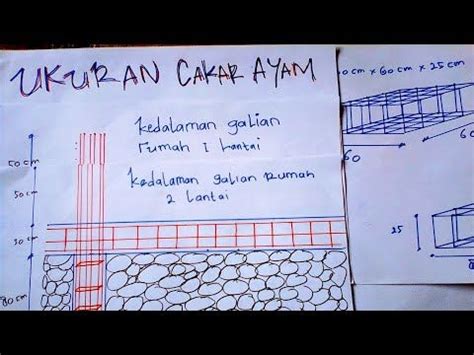 UKURAN CAKAR AYAM
kedalaman galian
rumah 1 lantai
kedalaman galian rumah
2 lantai
50 cm
50 cm
30 cm
80 cm
0 cm x 60 cm x 25 cm
60
60
25